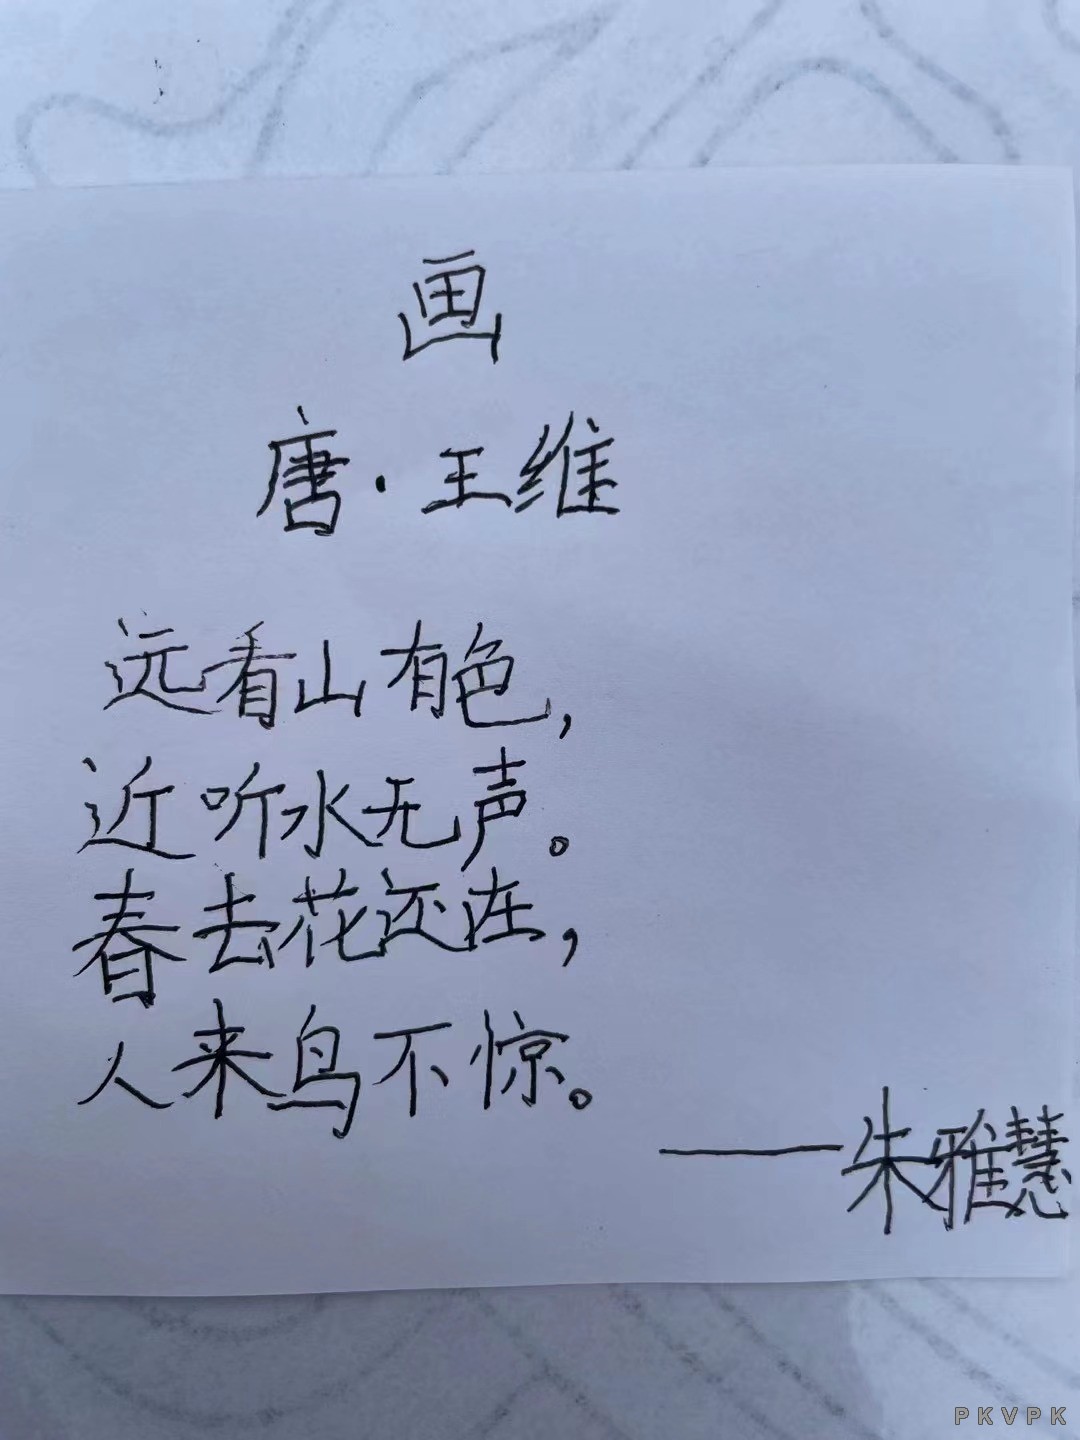 画
唐·王维
远看山有色，
近听水无声。
春去花还在，
人来鸟不惊。
——朱雅慧
PKVPK